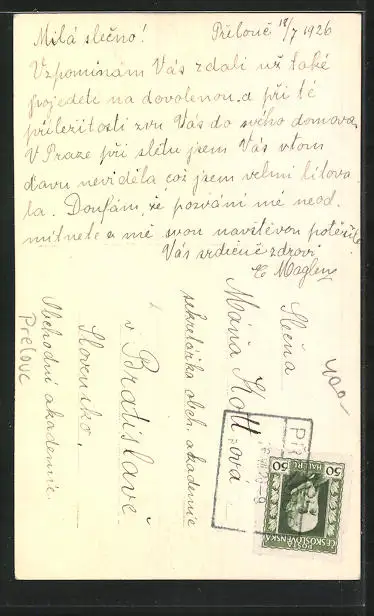 Milá slečno! Přelouč 18/7 1926
Vzpomínám Vás zdali už také
pojedete na dovolenou a při té
příležitosti zvu Vás do svého domova.
V Praze při sletu jsem Vás v tom
davu neviděla což jsem velmi litova
la. Doufám, že pozvání mé neod
mítnete a mě svou návštěvou potěšíte
Vás srdečně zdraví
Slečna
Mária Kottová
sekretářka obch. akademie
v Bratislavě
Slovensko.
Obchodní akademie
Přelouč
400
50 50
HAL. RU
POŠTA
ČESKOSLOVENSKÁ